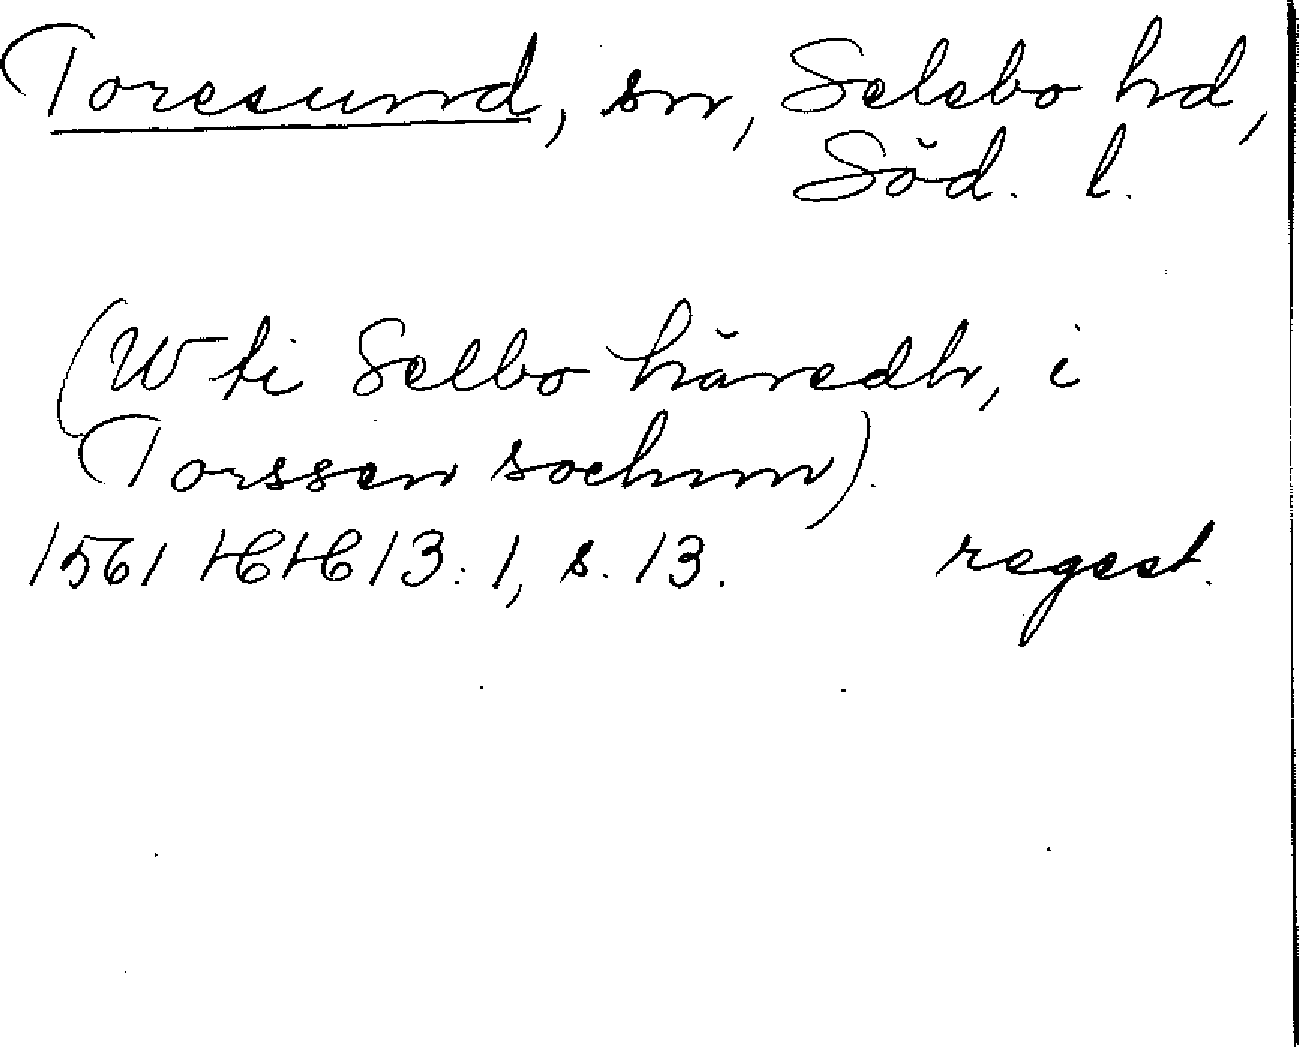 Toresund, sn, Selebo hd,
Söd. l.
(Wti Selbo häredh, i
Torssen sochnn).
1561 HH 13:1, s. 13. regest.